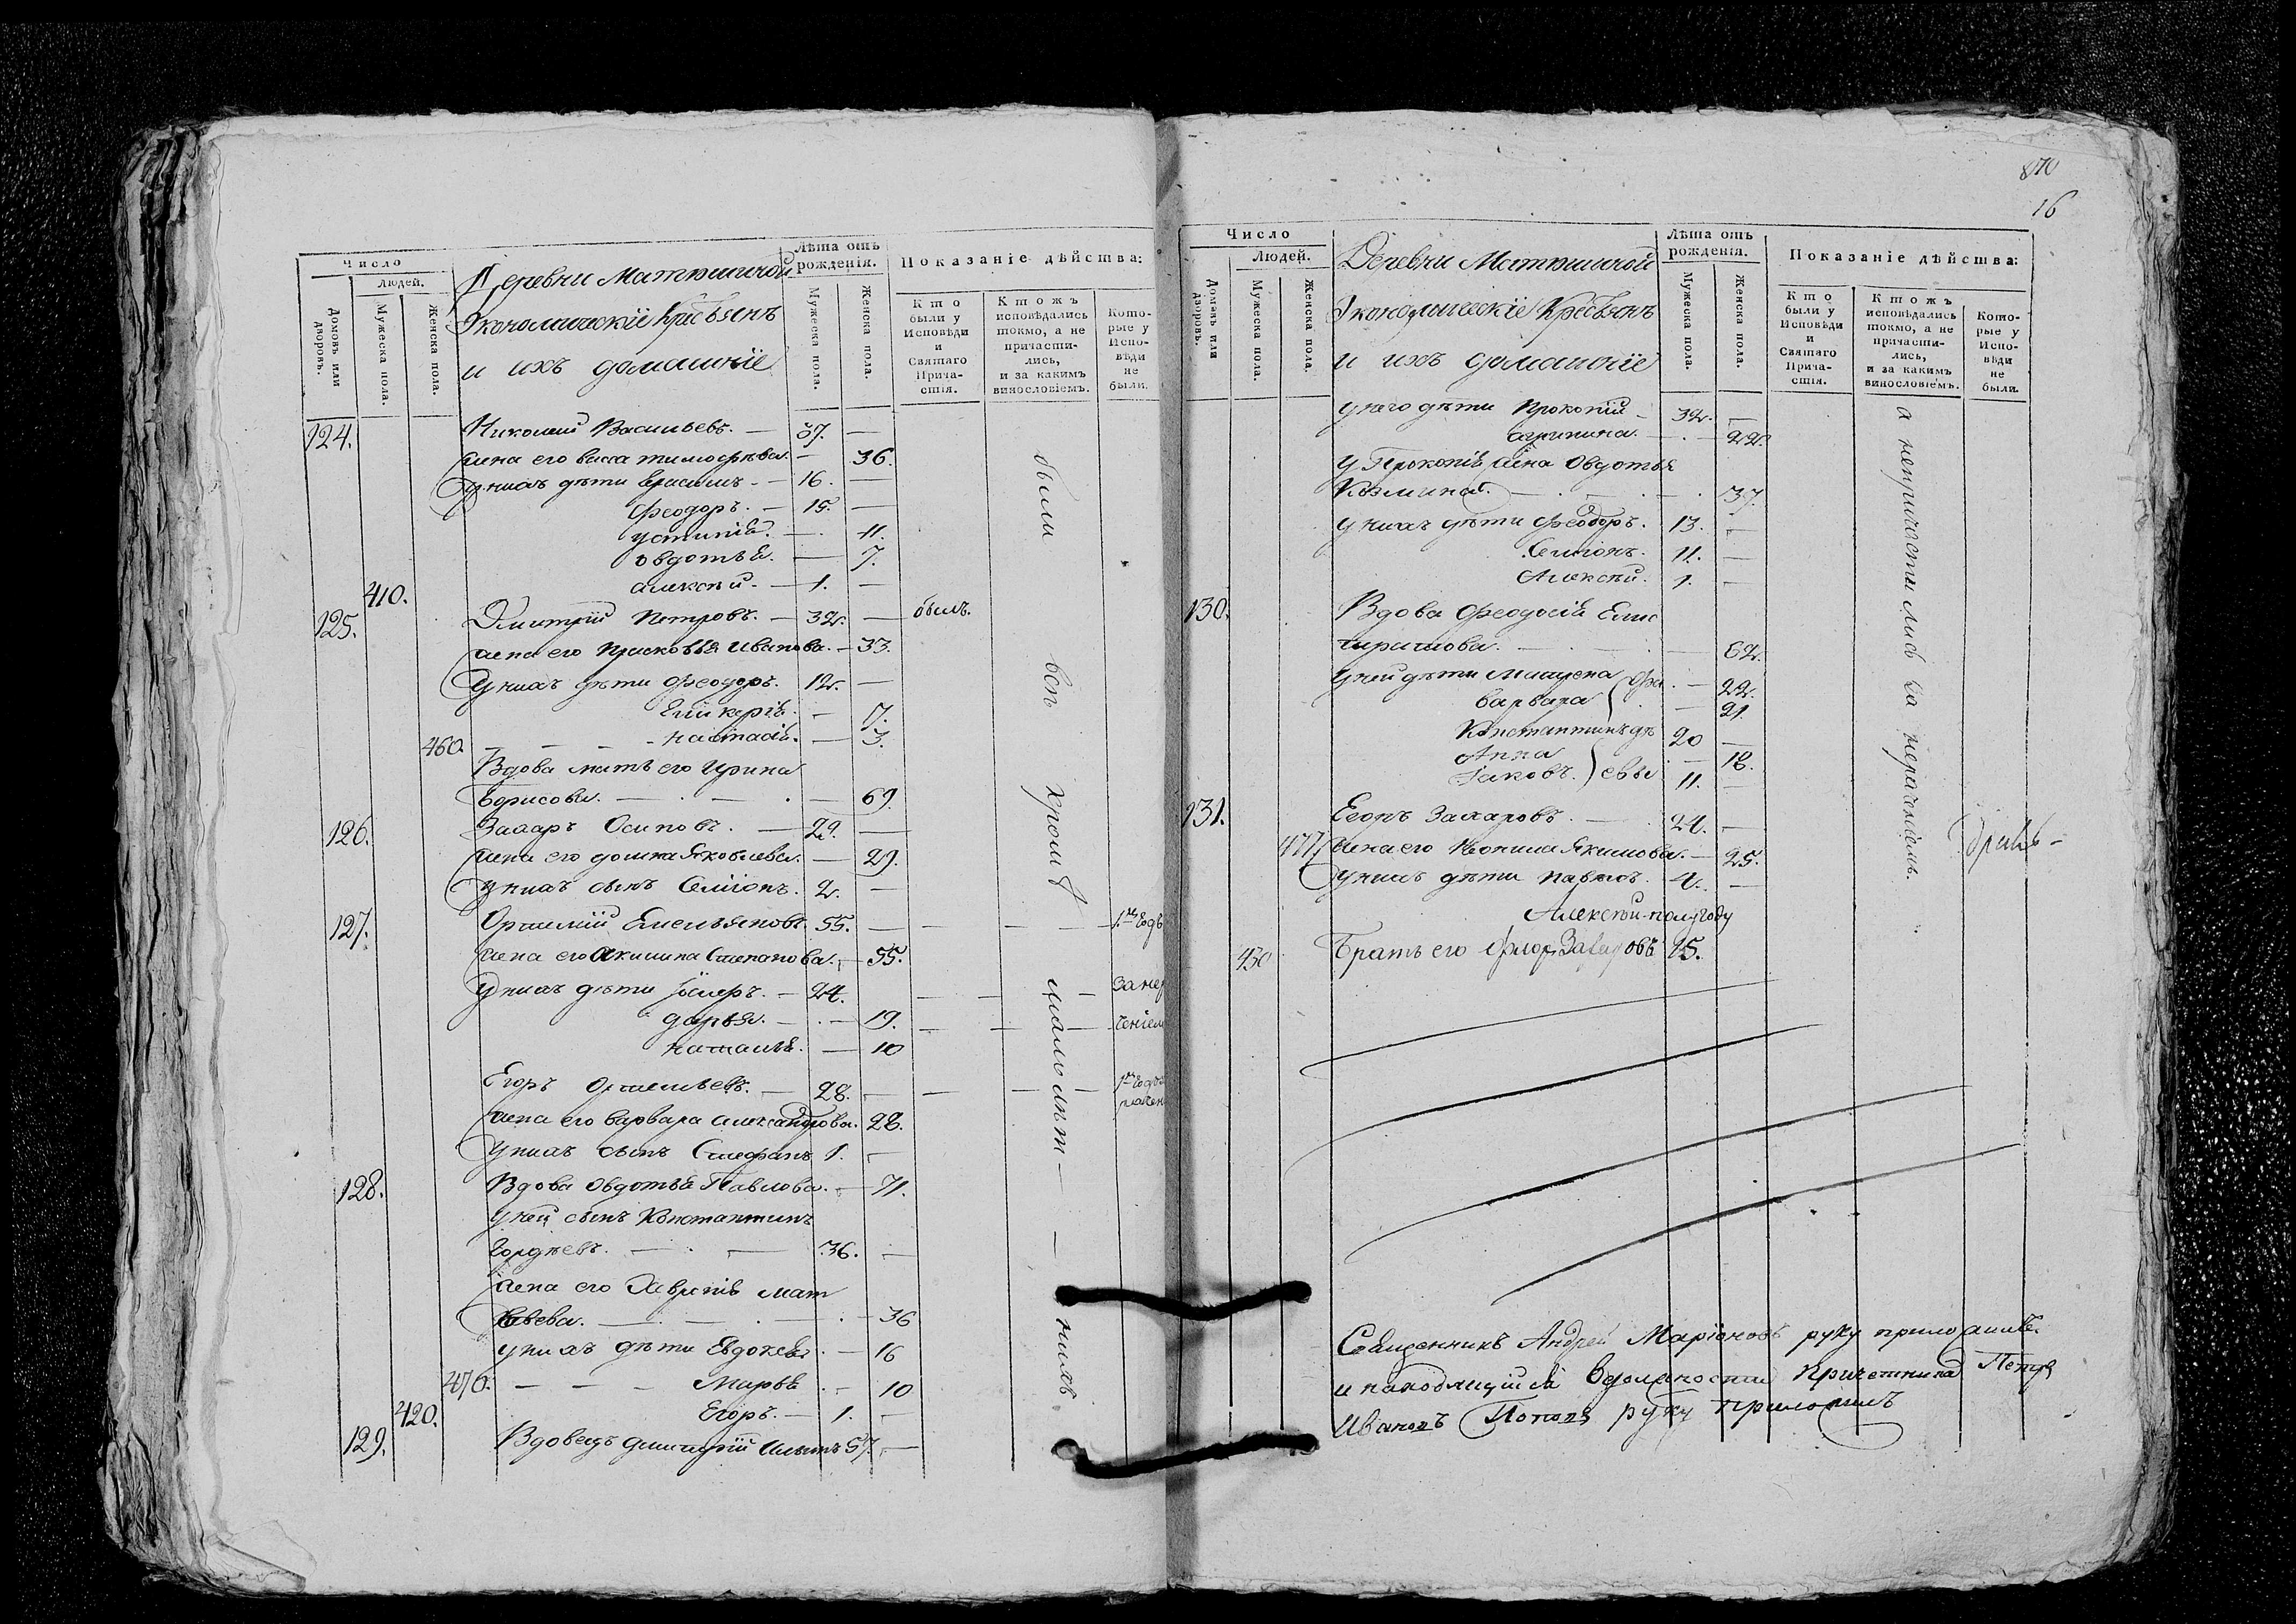 Число
Людей.
Домовъ или дворовъ.
Мужеска пола.
Женска пола.
Деревни Матюшиной
Экономическіе Крестьянъ
и ихъ домашніе
Лѣта отъ рожденія.
Мужеска пола.
Женска пола.
Показаніе дѣйства:
Кто были у Исповѣди и Святаго Причастія.
Ктожъ исповѣдались токмо, а не причастились, и за какимъ винословіемъ.
Которые у Исповѣди не были.
124. Николай Васильевъ. — 37. —
жена его васса тимофѣева. — 36.
у нихъ дѣти Герасимъ — 16. —
Феодоръ. — 15. —
устинія. — 11.
овдотья. — 7.
410. алексѣй. — 1. —
125. Дмитрій Петровъ. — 32. — былъ.
жена его Прасковья Иванова. — 33.
у нихъ дѣти Феодоръ. 12. —
Гликерія. — 7.
460. — — — настасія. — 3.
Вдова мать его Ирина
Борисова. — . — . — 69.
126. Захаръ Осиповъ. — 29. —
жена его домна Яковлева. — 29.
у нихъ сынъ Семіонъ. 2. —
127. Ортемій Емельяновъ. 55. — — — — 1.й годъ
жена его Акилина Степанова. — 55.
у нихъ дѣти — 24. — — — за нер
дарья. — . — 19. — — — ченіем
наталья. — 10
Егоръ Ортемьевъ. — 28. — — — — 1й годъ
жена его варвара александрова. 28.
у нихъ сынъ Стефанъ 1. —
128. Вдова овдотья Павлова. — 71.
у ней сынъ Константинъ
Гордѣевъ. — . — 36. —
жена его Хавронія мат
вѣева. — . — . — . — 36
у нихъ дѣти Евдокея . — 16
470. — — — Марья . — 10
420. Егоръ. — 1. —
129. Вдовецъ дмитрій 57. —
были всѣ кромѣ малолѣт — нихъ
870
16
Число
Людей.
Домовъ или дворовъ.
Мужеска пола.
Женска пола.
Деревни Матюшиной
Экономическіе Крестьянъ
и ихъ домашніе
Лѣта отъ рожденія.
Мужеска пола.
Женска пола.
Показаніе дѣйства:
Кто были у Исповѣди и Святаго Причастія.
Ктожъ исповѣдались токмо, а не причастились, и за какимъ винословіемъ.
Которые у Исповѣди не были.
у него дѣти Прокопій — 32. —
агрипина. — . — 22.
у Прокопія жена Овдотья
Козмина. — . — . — . 37.
у нихъ дѣти Феодоръ. 13. —
Семіонъ. 11. —
Алексѣй. 1. —
130. Вдова Феодосія
62.
у ней дѣти . — 22.
варвара . — 21.
Константинъ 20 —
Анна . — 18.
Іаковъ. евы 11. —
131. Егоръ Захаровъ. — . 24. —
477 жена его Неонила Якимова. — 25.
у нихъ дѣти Павелъ. 4. —
Алексѣй — полугоду
430 Братъ его Флоръ Захаровъ 15.
а непричастились за нераченіемъ.
Священникъ Андрей Маріоновъ руку приложилъ.
и находящійся въ должности Причетника Петръ
Ивановъ Поповъ руку приложилъ